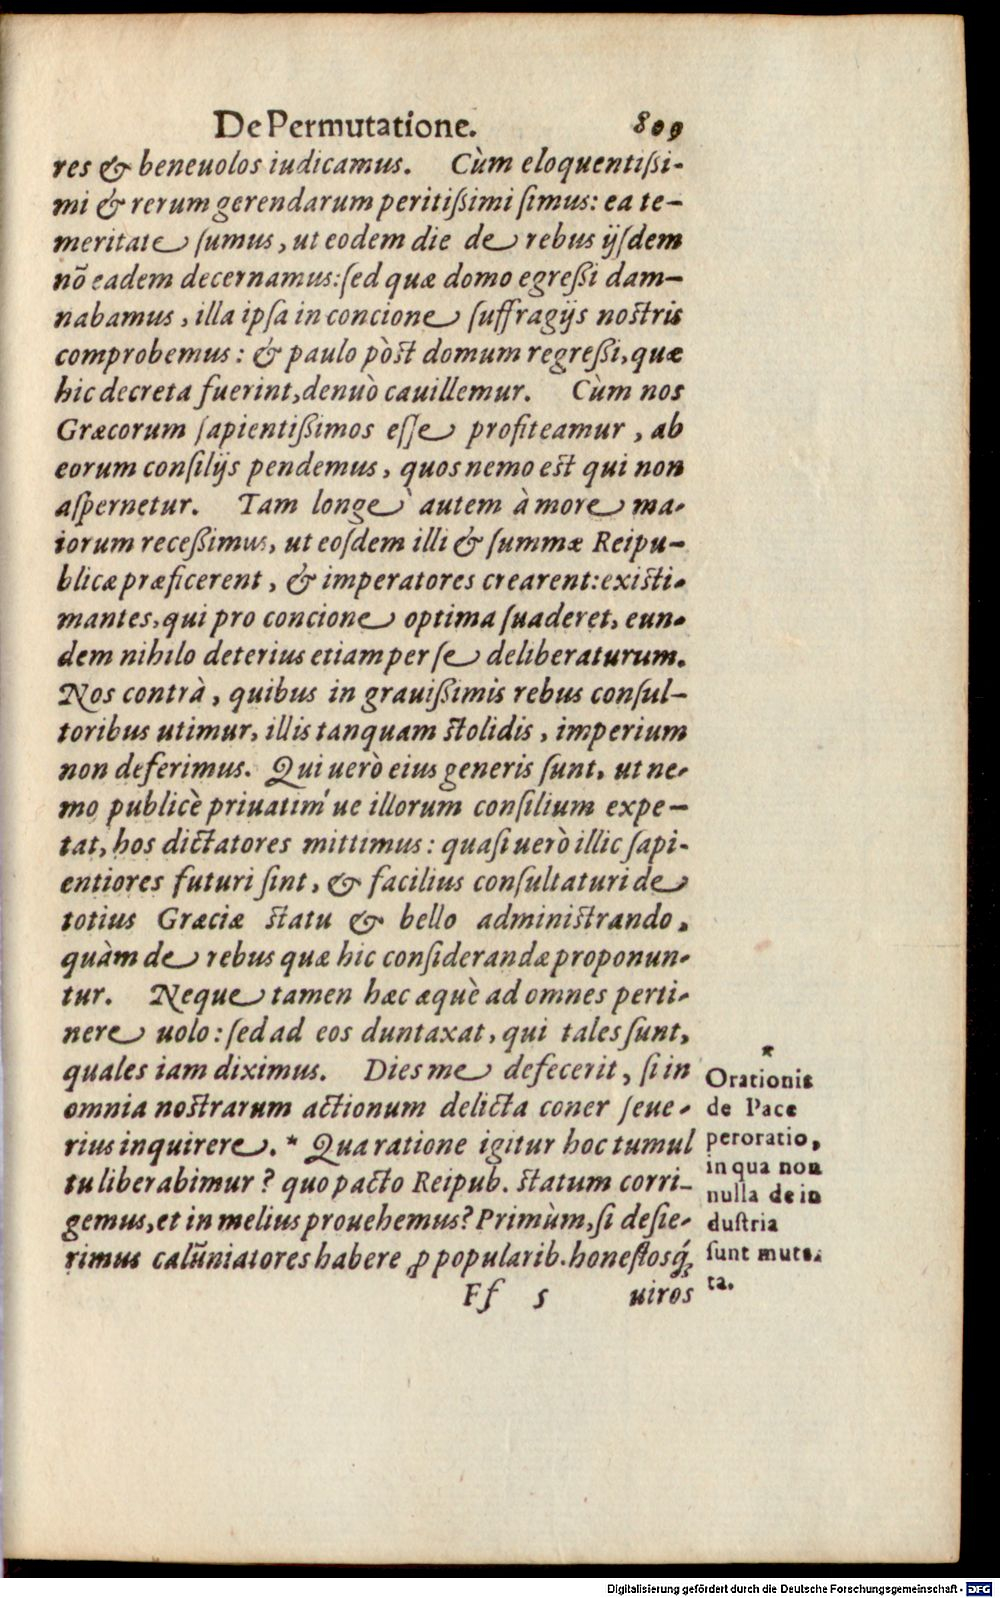 De Permutatione. 809
res & beneuolos iudicamus. Cùm eloquentißi-
mi & rerum gerendarum peritißimi ſimus: ea te-
meritate ſumus, ut eodem die de rebus ijſdem
nõ eadem decernamus: ſed quæ domo egreßi dam-
nabamus, illa ipſa in concione ſuffragijs nostris
comprobemus: & paulo pòst domum regreßi, quæ
hic decreta fuerint, denuò cauillemur. Cùm nos
Græcorum ſapientißimos eſſe profiteamur, ab
eorum conſilijs pendemus, quos nemo est qui non
aſpernetur. Tam longè autem à more ma-
iorum receßimus, ut eoſdem illi & ſummæ Reipu-
blicæ præficerent, & imperatores crearent: existi-
mantes, qui pro concione optima ſuaderet, eun-
dem nihilo deterius etiam per ſe deliberaturum.
Nos contrà, quibus in grauißimis rebus conſul-
toribus utimur, illis tanquam stolidis, imperium
non deferimus. Qui uerò eius generis ſunt, ut ne-
mo publicè priuatim'ue illorum conſilium expe-
tat, hos dictatores mittimus: quaſi uerò illic ſapi-
entiores futuri ſint, & facilius conſultaturi de
totius Græciæ statu & bello administrando,
quàm de rebus quæ hic conſiderandæ proponun-
tur. Neque tamen hæc æquè ad omnes perti-
nere uolo: ſed ad eos duntaxat, qui tales ſunt,
quales iam diximus. Dies me defecerit, ſi in
omnia nostrarum actionum delicta coner ſeue-
rius inquirere. * Qua ratione igitur hoc tumul
tu liberabimur? quo pacto Reipub. statum corri-
gemus, et in melius prouehemus? Primùm, ſi deſie-
rimus calũniatores habere ꝓ popularib. honeſtosq́;
Ff 5 uiros
*
Orationis
de Pace
peroratio,
in qua non
nulla de in
duſtria
ſunt muta-
ta.
Digitalisierung gefördert durch die Deutsche Forschungsgemeinschaft - DFG